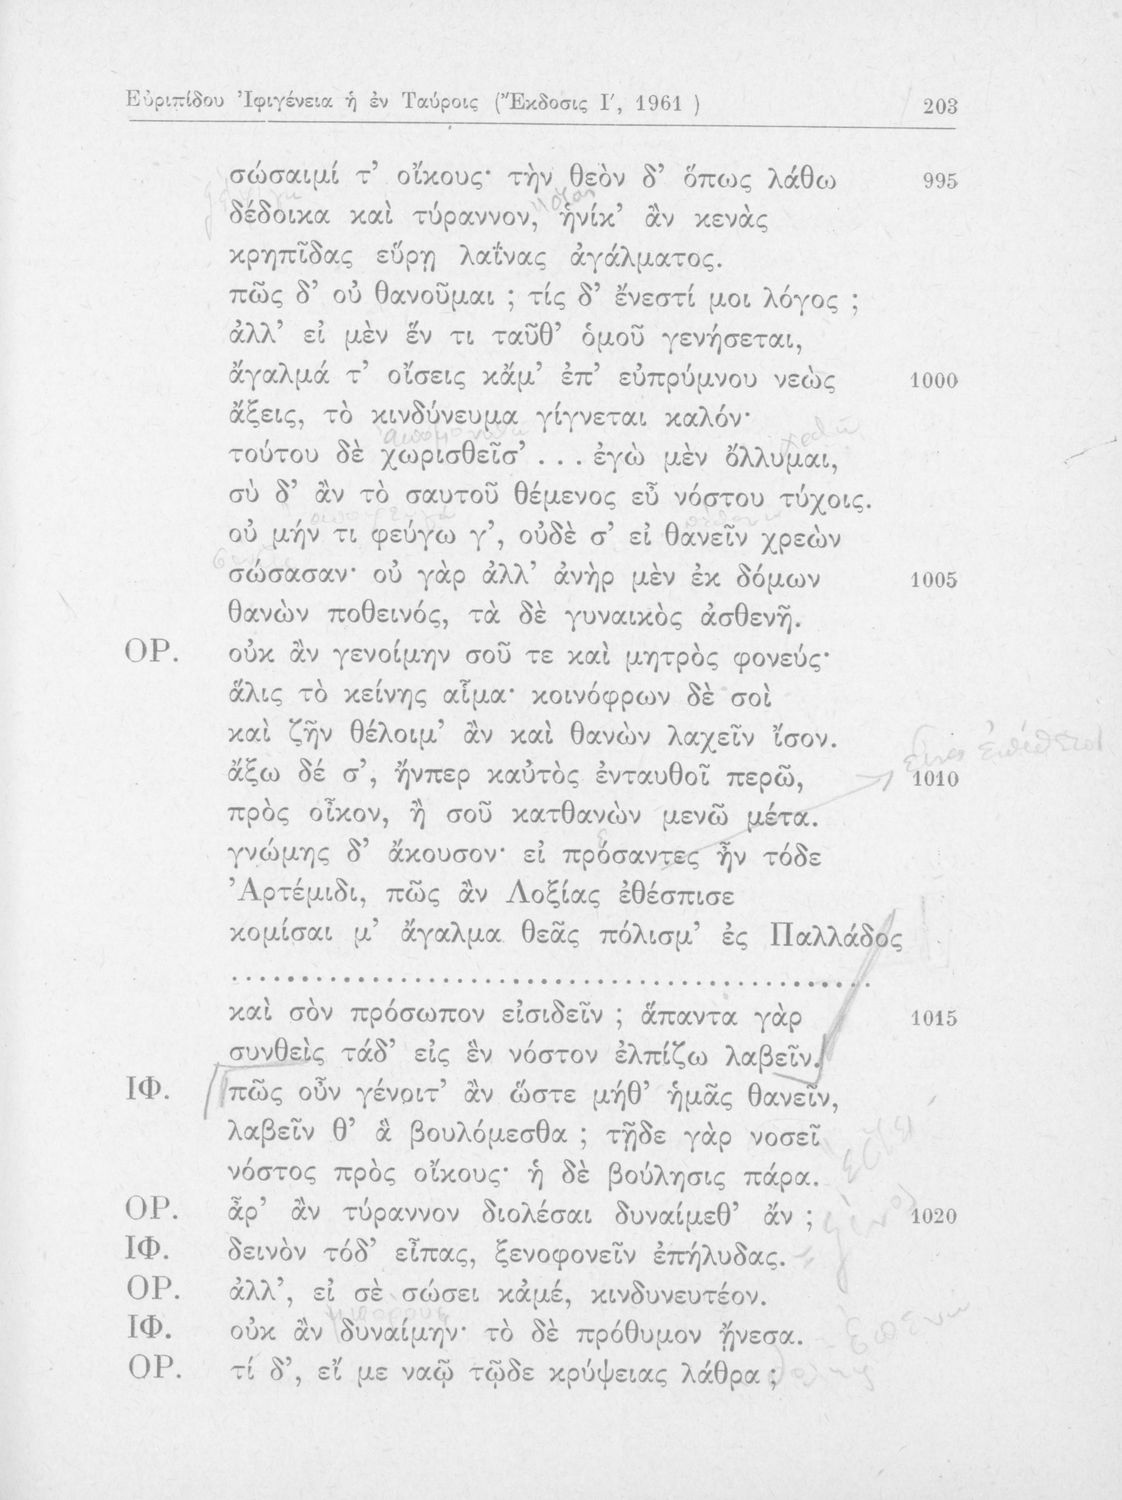 Εὐριπίδου Ἰφιγένεια ἡ ἐν Ταύροις (Ἔκδοσις Ι′, 1961 ) 203
σώσαιμί τ’ οἴκους· τὴν θεὸν δ’ ὅπως λάθω 995
δέδοικα καὶ τύραννον, ἡνίκ’ ἂν κενὰς
κρηπῖδας εὕρῃ λαΐνας ἀγάλματος.
πῶς δ’ οὐ θανοῦμαι ; τίς δ’ ἔνεστί μοι λόγος ;
ἀλλ’ εἰ μὲν ἕν τι ταῦθ’ ὁμοῦ γενήσεται,
ἄγαλμά τ’ οἴσεις κἄμ’ ἐπ’ εὐπρύμνου νεὼς 1000
ἄξεις, τὸ κινδύνευμα γίγνεται καλόν·
τούτου δὲ χωρισθεῖσ’ . . . ἐγὼ μὲν ὄλλυμαι,
σὺ δ’ ἂν τὸ σαυτοῦ θέμενος εὖ νόστου τύχοις.
οὐ μήν τι φεύγω γ’, οὐδὲ σ’ εἰ θανεῖν χρεὼν
σώσασαν· οὐ γὰρ ἀλλ’ ἀνὴρ μὲν ἐκ δόμων 1005
θανὼν ποθεινός, τὰ δὲ γυναικὸς ἀσθενῆ.
ΟΡ. οὐκ ἂν γενοίμην σοῦ τε καὶ μητρὸς φονεύς·
ἅλις τὸ κείνης αἷμα· κοινόφρων δὲ σοὶ
καὶ ζῆν θέλοιμ’ ἂν καὶ θανὼν λαχεῖν ἴσον.
ἄξω δέ σ’, ἤνπερ καὐτὸς ἐνταυθοῖ περῶ, 1010
πρὸς οἶκον, ἢ σοῦ κατθανὼν μενῶ μέτα.
γνώμης δ’ ἄκουσον· εἰ πρόσαντες ἦν τόδε
Ἀρτέμιδι, πῶς ἂν Λοξίας ἐθέσπισε
κομίσαι μ’ ἄγαλμα θεᾶς πόλισμ’ ἐς Παλλάδος
................................................
καὶ σὸν πρόσωπον εἰσιδεῖν ; ἅπαντα γὰρ 1015
συνθεὶς τάδ’ εἰς ἓν νόστον ἐλπίζω λαβεῖν.
ΙΦ. πῶς οὖν γένοιτ’ ἂν ὥστε μήθ’ ἡμᾶς θανεῖν,
λαβεῖν θ’ ἃ βουλόμεσθα ; τῇδε γὰρ νοσεῖ
νόστος πρὸς οἴκους· ἡ δὲ βούλησις πάρα.
ΟΡ. ἆρ’ ἂν τύραννον διολέσαι δυναίμεθ’ ἄν ; 1020
ΙΦ. δεινὸν τόδ’ εἶπας, ξενοφονεῖν ἐπήλυδας.
ΟΡ. ἀλλ’, εἰ σὲ σώσει κἀμέ, κινδυνευτέον.
ΙΦ. οὐκ ἂν δυναίμην· τὸ δὲ πρόθυμον ᾔνεσα.
ΟΡ. τί δ’, εἴ με ναῷ τῷδε κρύψειας λάθρα ;